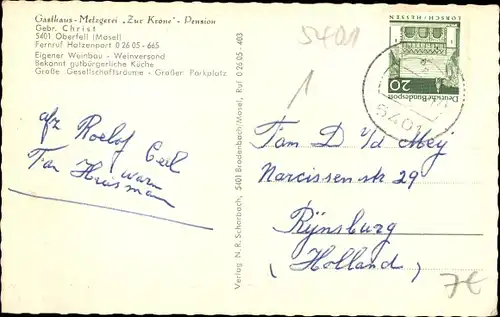 Gasthaus - Metzgerei „Zur Krone" - Pension
Gebr. Christ
5401 Oberfell (Mosel)
Fernruf Hatzenport 0 26 05 - 665
Eigener Weinbau - Weinversand
Bekannt gutbürgerliche Küche
Große Gesellschaftsräume - Großer Parkplatz
afz Roelof
Huisman
Verlag N. R. Scherbach, 5401 Brodenbach/Mosel, Ruf 0 26 05 - 403
5401
1
LORSCH/HESSEN
20
Deutsche Bundespost
5401
Fam D v/d Meij
Narcissenstr 29
Rijnsburg
(Holland)
7€